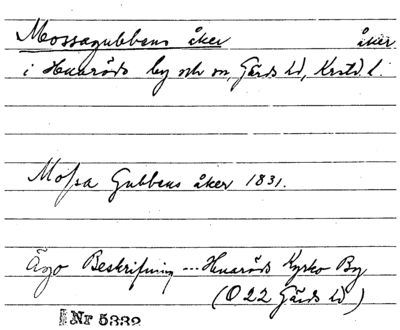 Mossagubbens åker åker
i Huaröds by och sn, Gärds hd, Krstd. l.
Mossa Gubbens åker 1831.
Ägo Beskrifning --- Huaröds Kyrko By
(O 22 Gärds hd)
Nr 5332